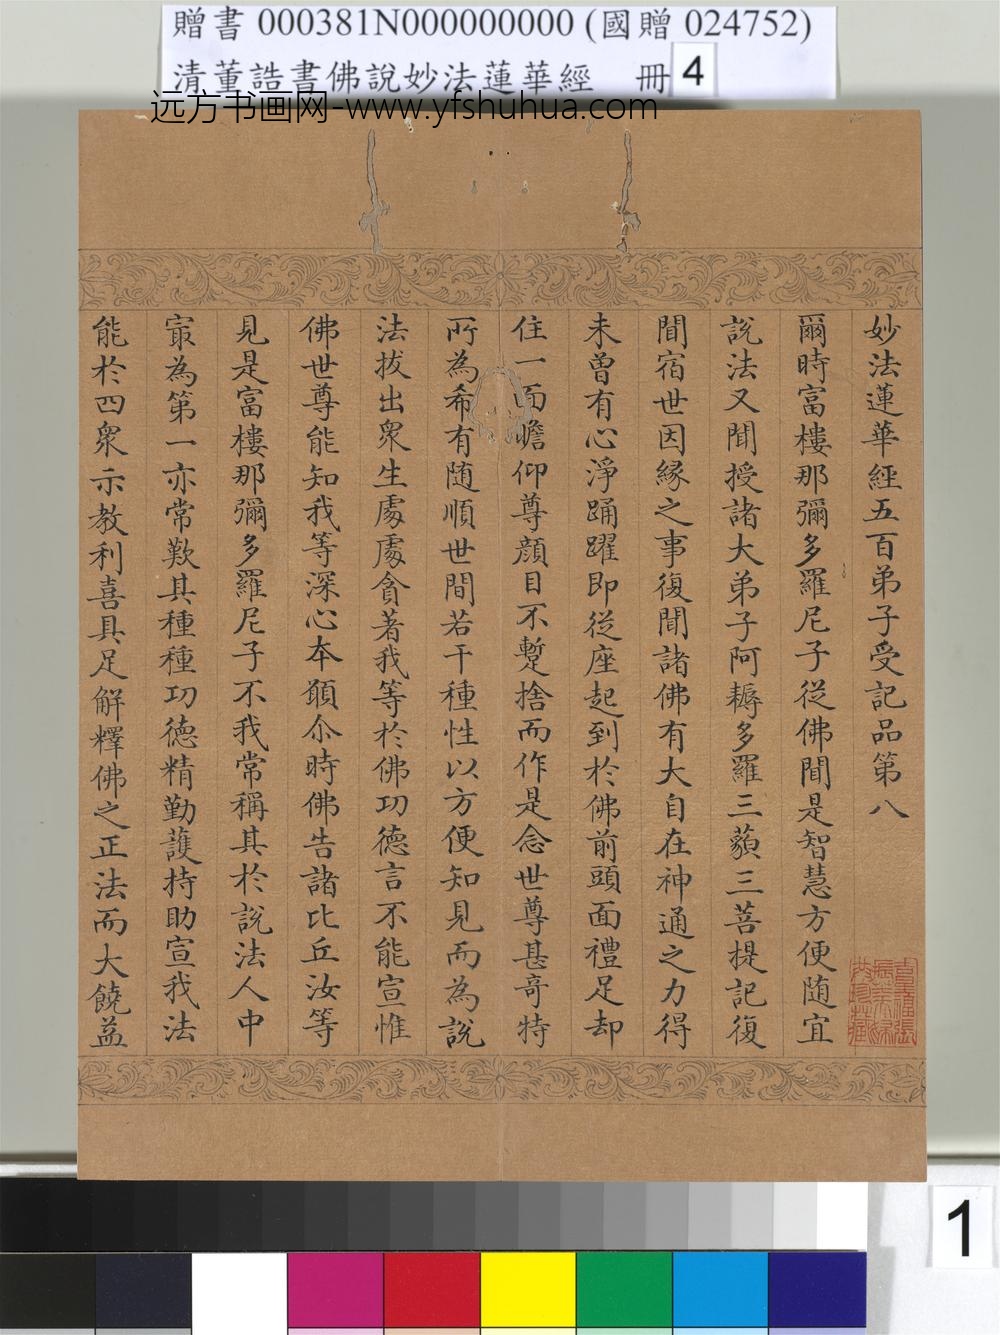 贈書 000381N000000000 (國贈 024752)
清董誥書佛說妙法蓮華經 冊 4
远方书画网-www.yfshuhua.com
妙法蓮華經五百弟子受記品第八
爾時富樓那彌多羅尼子從佛聞是智慧方便随宜
說法又聞授諸大弟子阿耨多羅三藐三菩提記復
聞宿世因緣之事復聞諸佛有大自在神通之力得
未曾有心淨踊躍即從座起到於佛前頭面禮足却
住一面瞻仰尊顔目不蹔捨而作是念世尊甚奇特
所為希有随順世間若干種性以方便知見而為說
法拔出衆生處處貪著我等於佛功德言不能宣惟
佛世尊能知我等深心本願尒時佛告諸比丘汝等
見是富樓那彌多羅尼子不我常稱其於說法人中
寂為第一亦常歎其種種功德精勤護持助宣我法
能於四衆示教利喜具足解釋佛之正法而大饒益
1